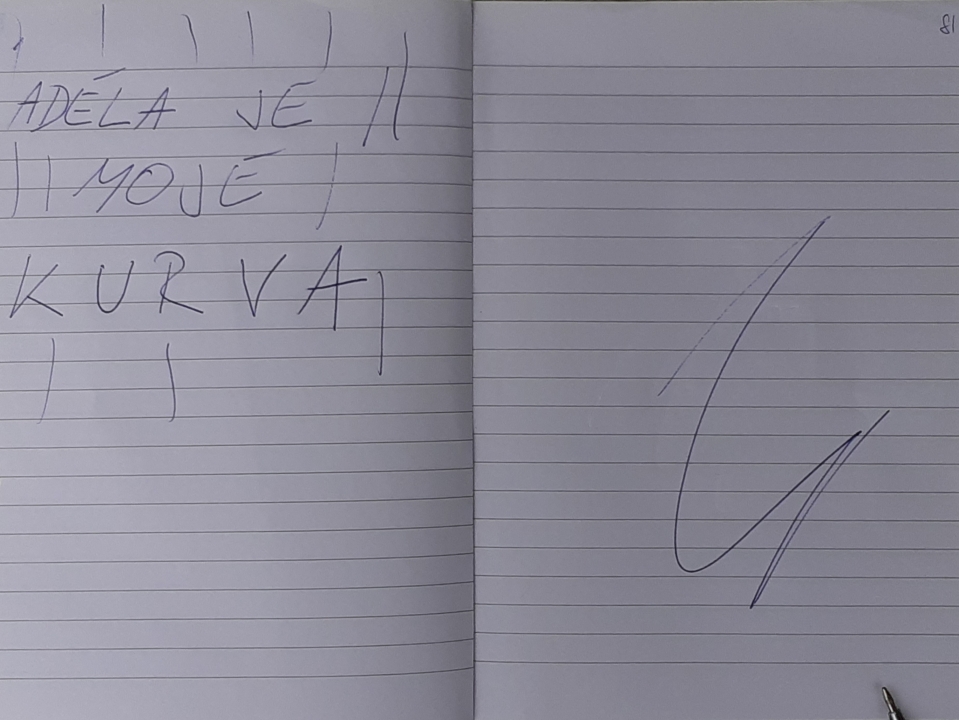 81
ADÉLA JE
MOJE
KURVA